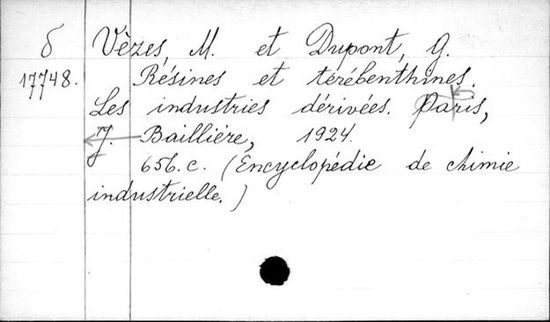 б Vèzes, M. et Dupont, G.
17748. Résines et térébenthines.
Les industries dérivées. Paris,
J. Baillière, 1924.
656.c. (Encyclopédie de chimie
industrielle.)